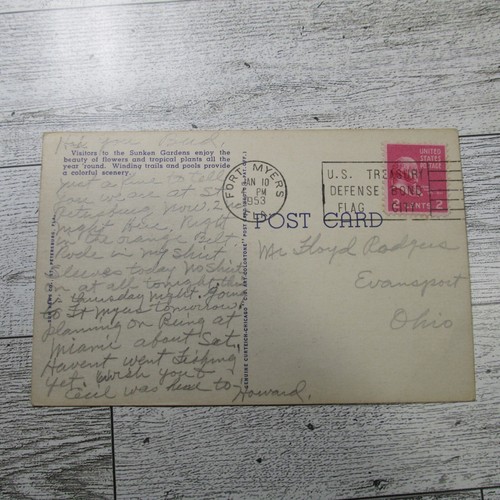 Visitors to the Sunken Gardens enjoy the
beauty of flowers and tropical plants all the
year 'round. Winding trails and pools provide
a colorful scenery.
Just a
on we at St
Pete been now 2
nights Here, Right
in the orange Belt.
Rode in my shirt
Sleeves today No shirt
on at all tonight this
is Thursday night. Going
to Ft Myers tomorrow.
planning on Being at
Miami about Sat.
Havent went Fishing
yet. Wish you &
Cecil was here to Howard.
GENUINE CURTEICH-CHICAGO "C.T. ART-COLORTONE" POST CARD
FORT MYERS
JAN 10
PM
1953
FLA.
U.S. TREASURY
DEFENSE BOND
FLAG CITY
UNITED
STATES
2 CENTS 2
POST CARD
Mr Floyd Rodgers
Evansport
Ohio